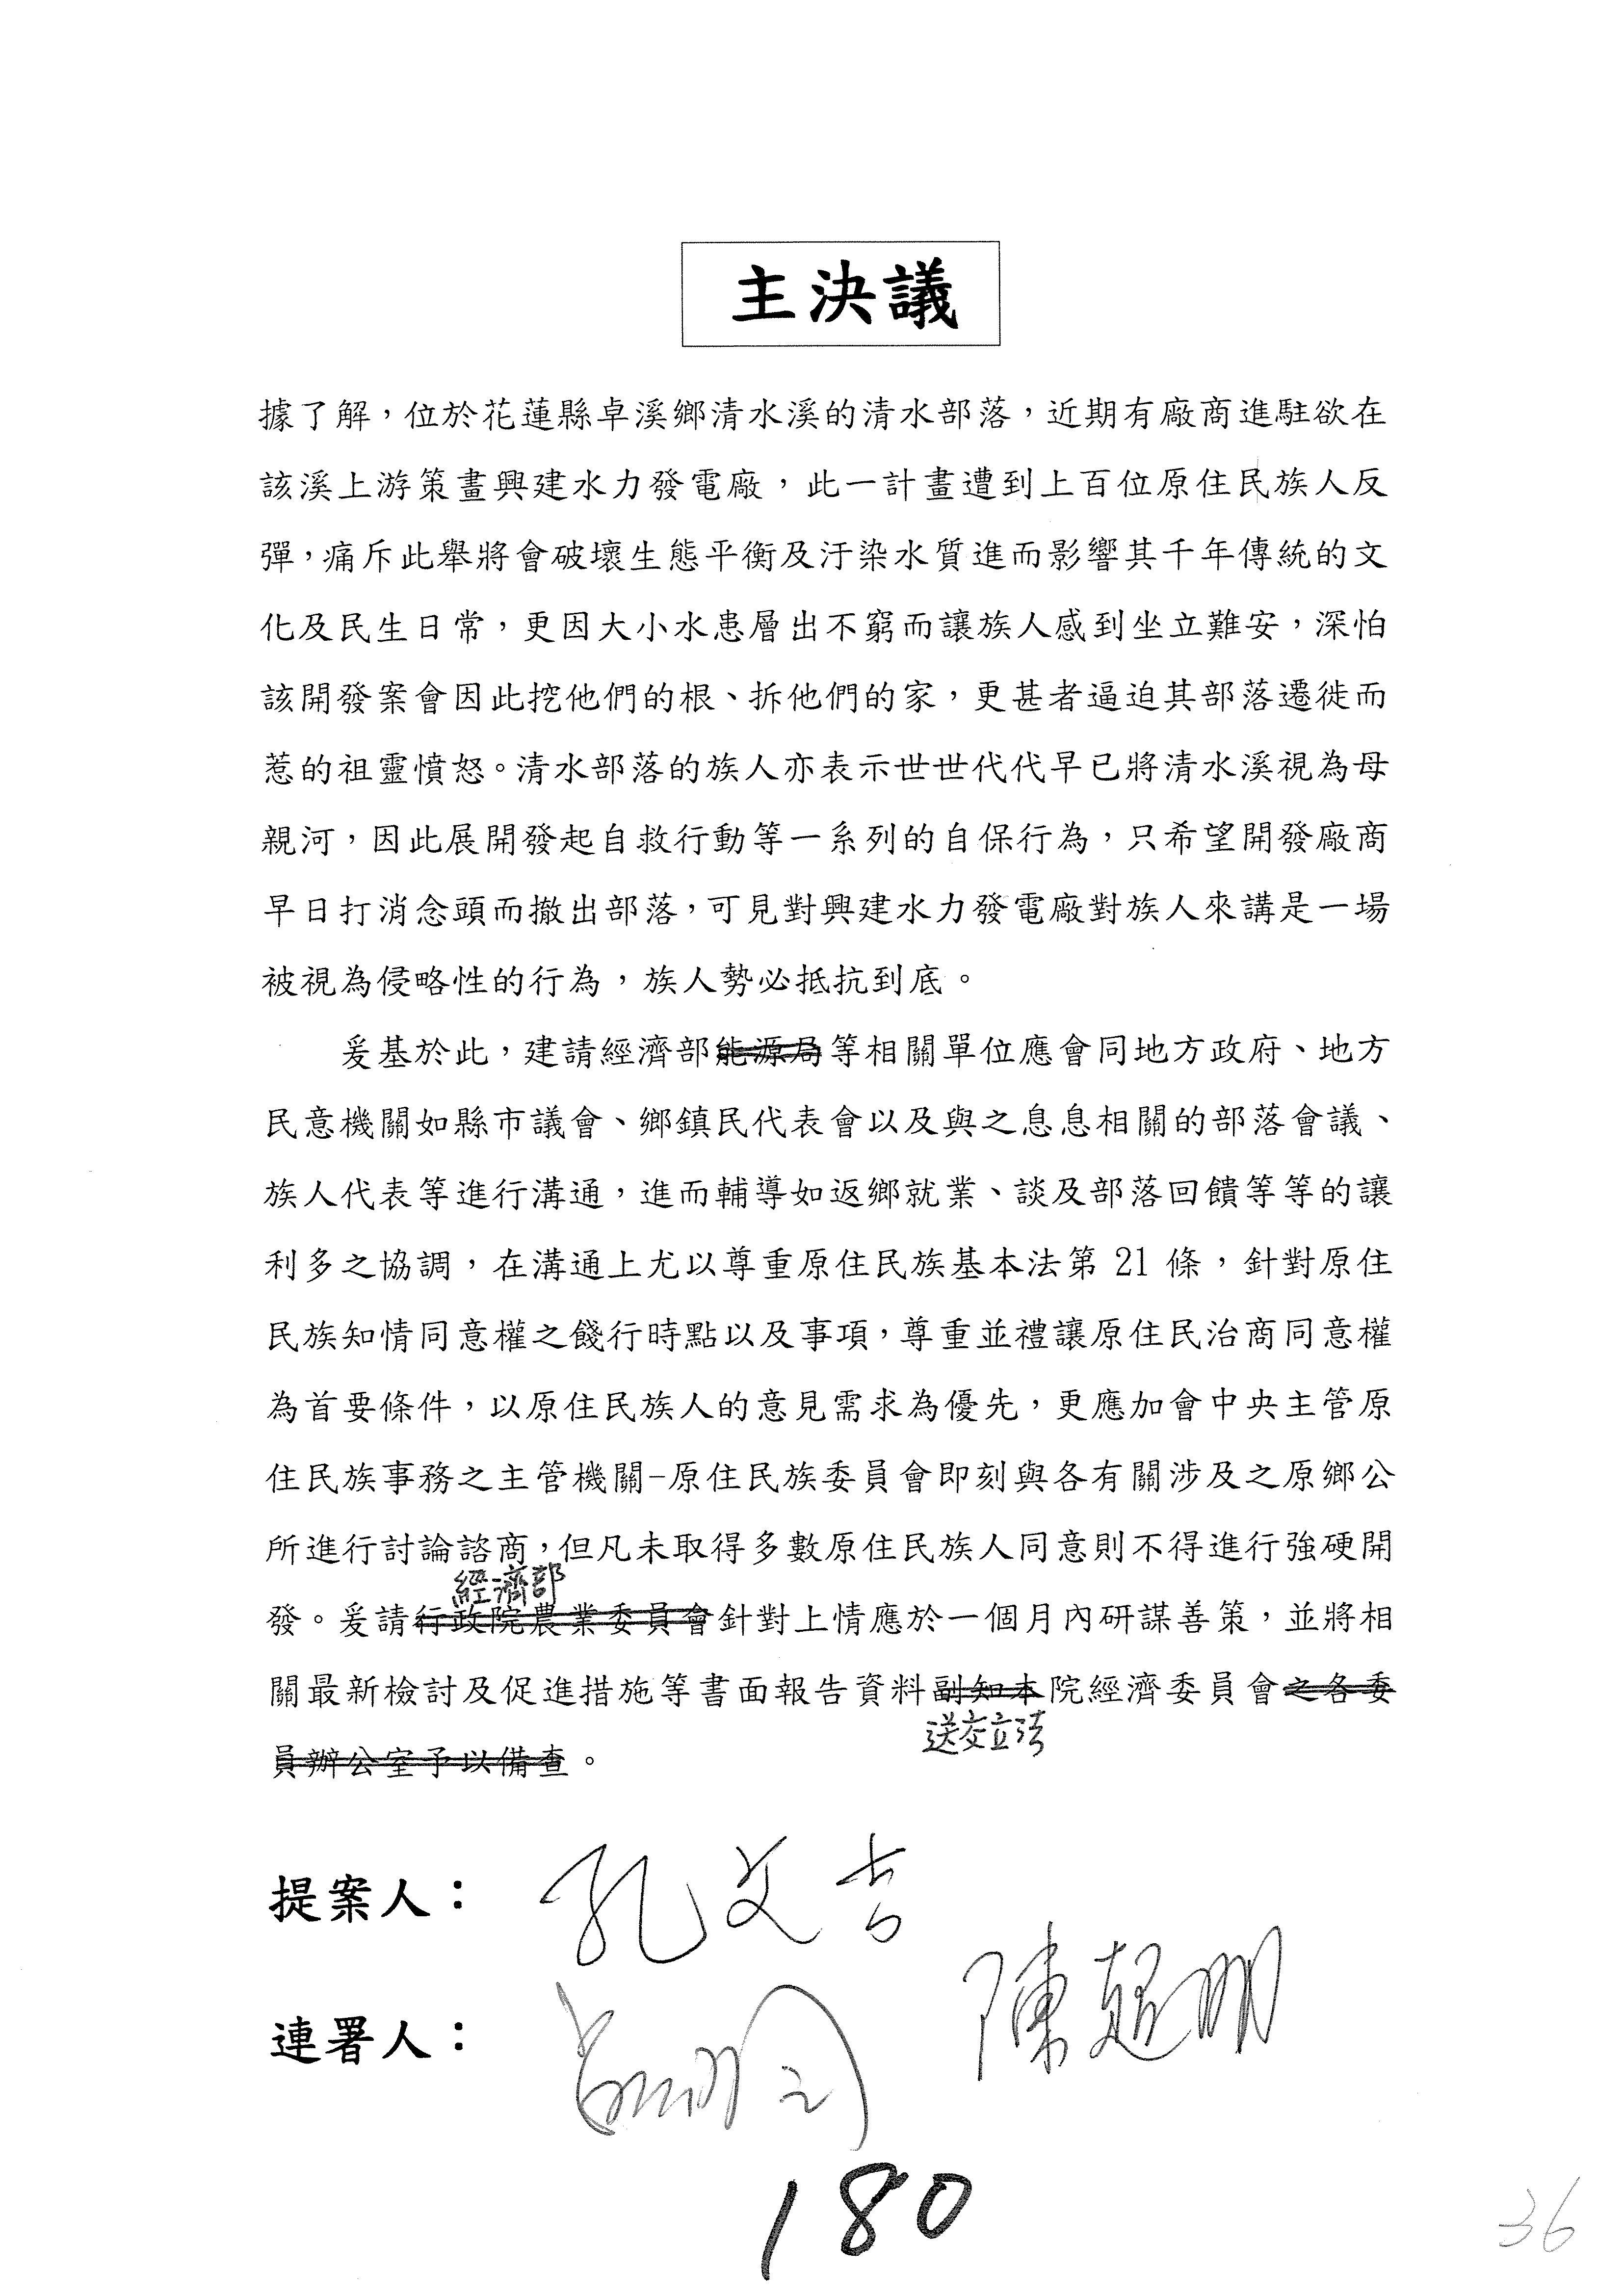 主決議
據了解，位於花蓮縣卓溪鄉清水溪的清水部落，近期有廠商進駐欲在
該溪上游策畫興建水力發電廠，此一計畫遭到上百位原住民族人反
彈，痛斥此舉將會破壞生態平衡及汙染水質進而影響其千年傳統的文
化及民生日常，更因大小水患層出不窮而讓族人感到坐立難安，深怕
該開發案會因此挖他們的根、拆他們的家，更甚者逼迫其部落遷徙而
惹的祖靈憤怒。清水部落的族人亦表示世世代代早已將清水溪視為母
親河，因此展開發起自救行動等一系列的自保行為，只希望開發廠商
早日打消念頭而撤出部落，可見對興建水力發電廠對族人來講是一場
被視為侵略性的行為，族人勢必抵抗到底。
爰基於此，建請經濟部能源局等相關單位應會同地方政府、地方
民意機關如縣市議會、鄉鎮民代表會以及與之息息相關的部落會議、
族人代表等進行溝通，進而輔導如返鄉就業、談及部落回饋等等的讓
利多之協調，在溝通上尤以尊重原住民族基本法第 21 條，針對原住
民族知情同意權之餞行時點以及事項，尊重並禮讓原住民治商同意權
為首要條件，以原住民族人的意見需求為優先，更應加會中央主管原
住民族事務之主管機關-原住民族委員會即刻與各有關涉及之原鄉公
所進行討論諮商，但凡未取得多數原住民族人同意則不得進行強硬開
經濟部
發。爰請行政院農業委員會針對上情應於一個月內研謀善策，並將相
關最新檢討及促進措施等書面報告資料副知本院經濟委員會之各委
送交立法
員辦公室予以備查。
提案人：孔文吉
陳超明
連署人：
180
36